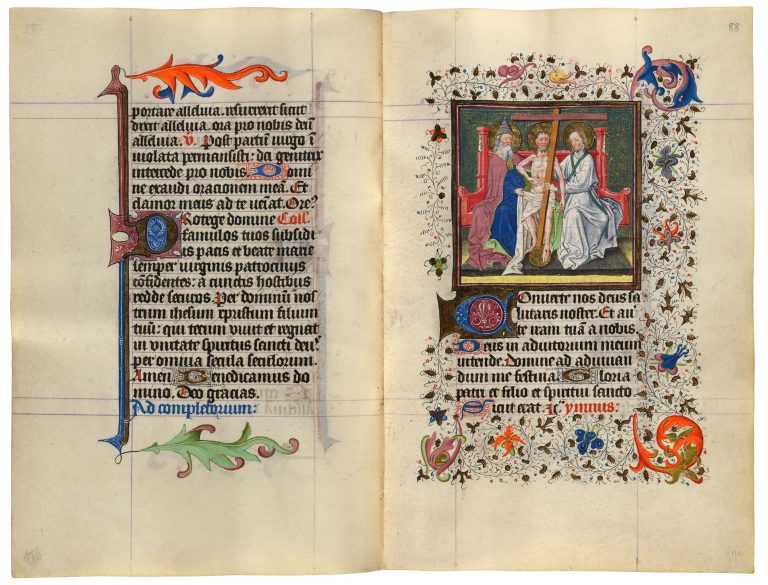 portare alleluia. resurrexit sicut
dixit alleluia. ora pro nobis deū
alleluia. V. Post partū virgo ī
violata permansisti: dei genitrix
intercede pro nobis Domi
ne exaudi orationem meā. Et
clamor meus ad te veniat. Ore2
Protege domine Coll.
famulos tuos subsidi
is pacis et beate marie
semper virginis patrocinijs
cōfidentes: a cunctis hostibus
redde securos. Per dominū nos
trum ihesum cpristum filium
tuū: qui tecum vivit et regnat
in unitate spiritus sancti deus
per omnia secula seculorum.
Amen. Benedicamus do
mino. Deo gracias.
Ad completorium:
88
Converte nos deus sa
lutaris noster. Et aver
te iram tuā a nobis.
Deus in adiutorium meum
intende. Domine ad adiuvan
dum me festina. Gloria
patri et filio et spiritui sancto
Sicut erat. ic. ymnus: